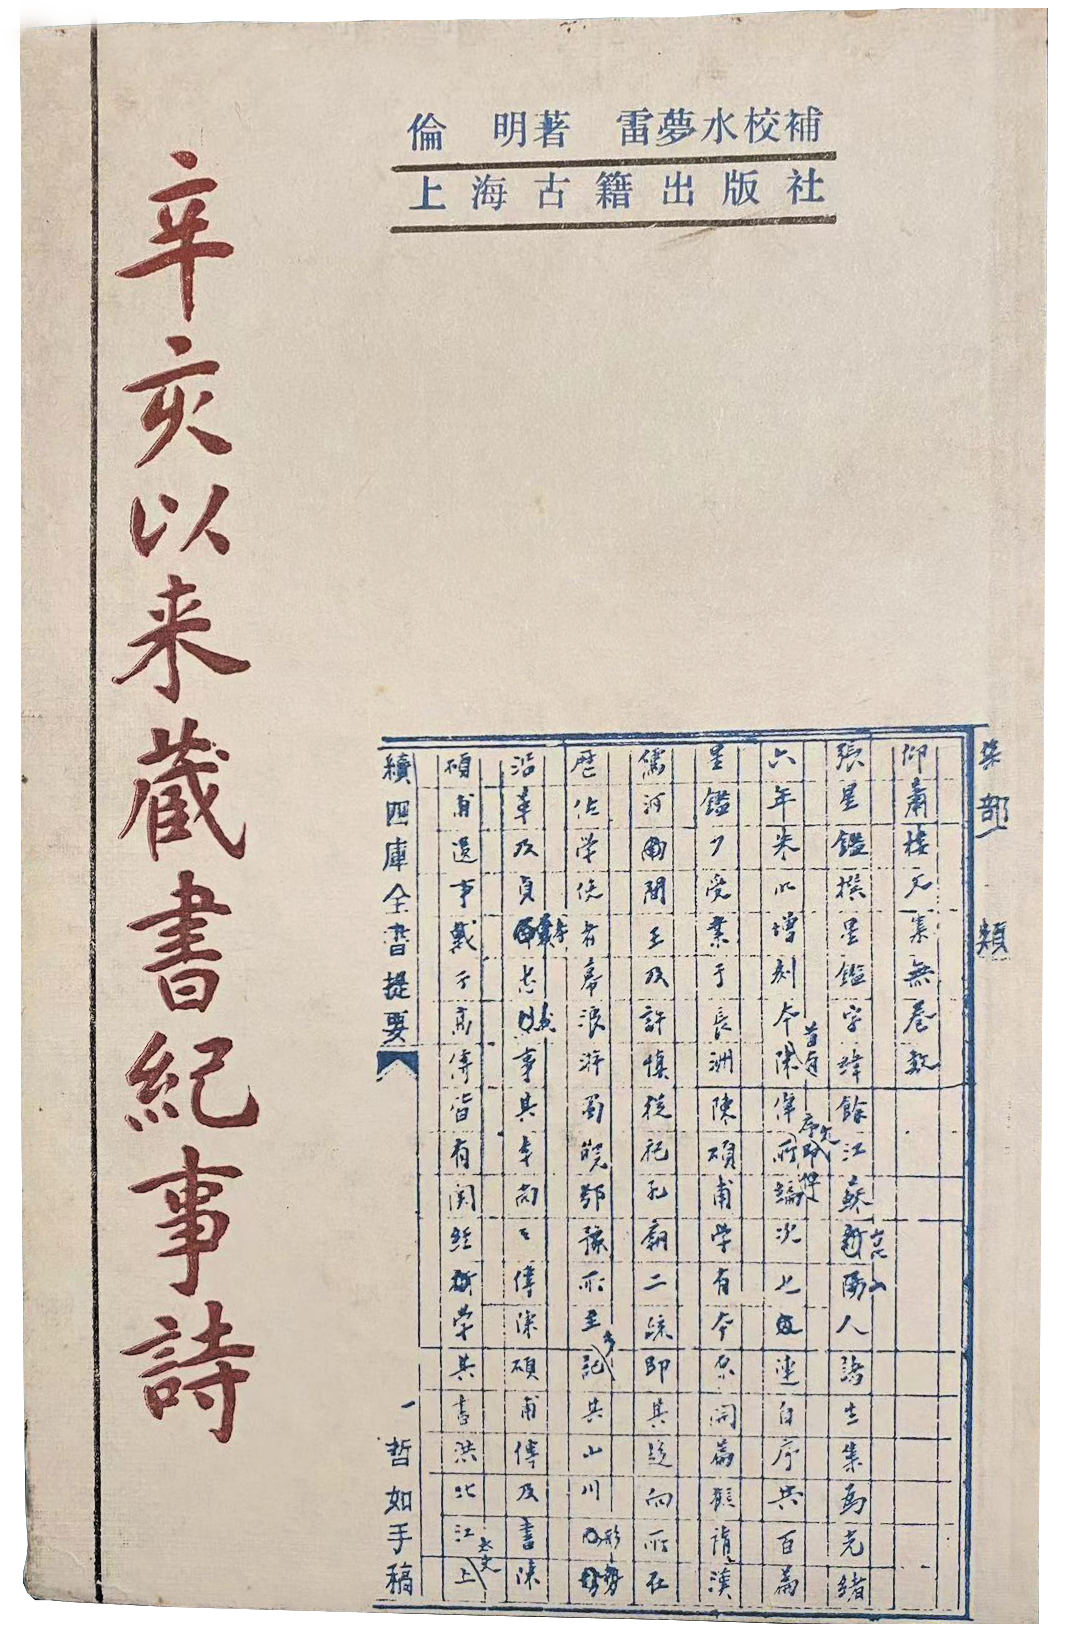 倫 明著 雷夢水校補
上海古籍出版社
辛亥以来藏書紀事詩
集部 類
仰蕭樓文集無卷數
張星鑑撰星鑑字緯餘江蘇新陽人諸生集為光緒
六年朱 增刻今陳倬所編次七 連自序共百篇
星鑑少受業于長洲陳碩甫學有今 開篇 漢
儒河間 王及許慎從祀孔廟二疏即其 向所在
歷佐學使者幕浪游蜀皖鄂豫所至 記其山川
沿革及貞 事其 向 傳陳碩甫傳及書陳
碩甫遺事戴 高傳皆有関經學其書洪北江上
續四庫全書提要
一
哲如手稿